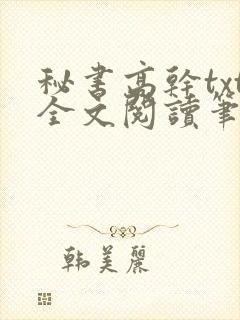 秘書高幹txt
全文閱讀筆
韩美麗